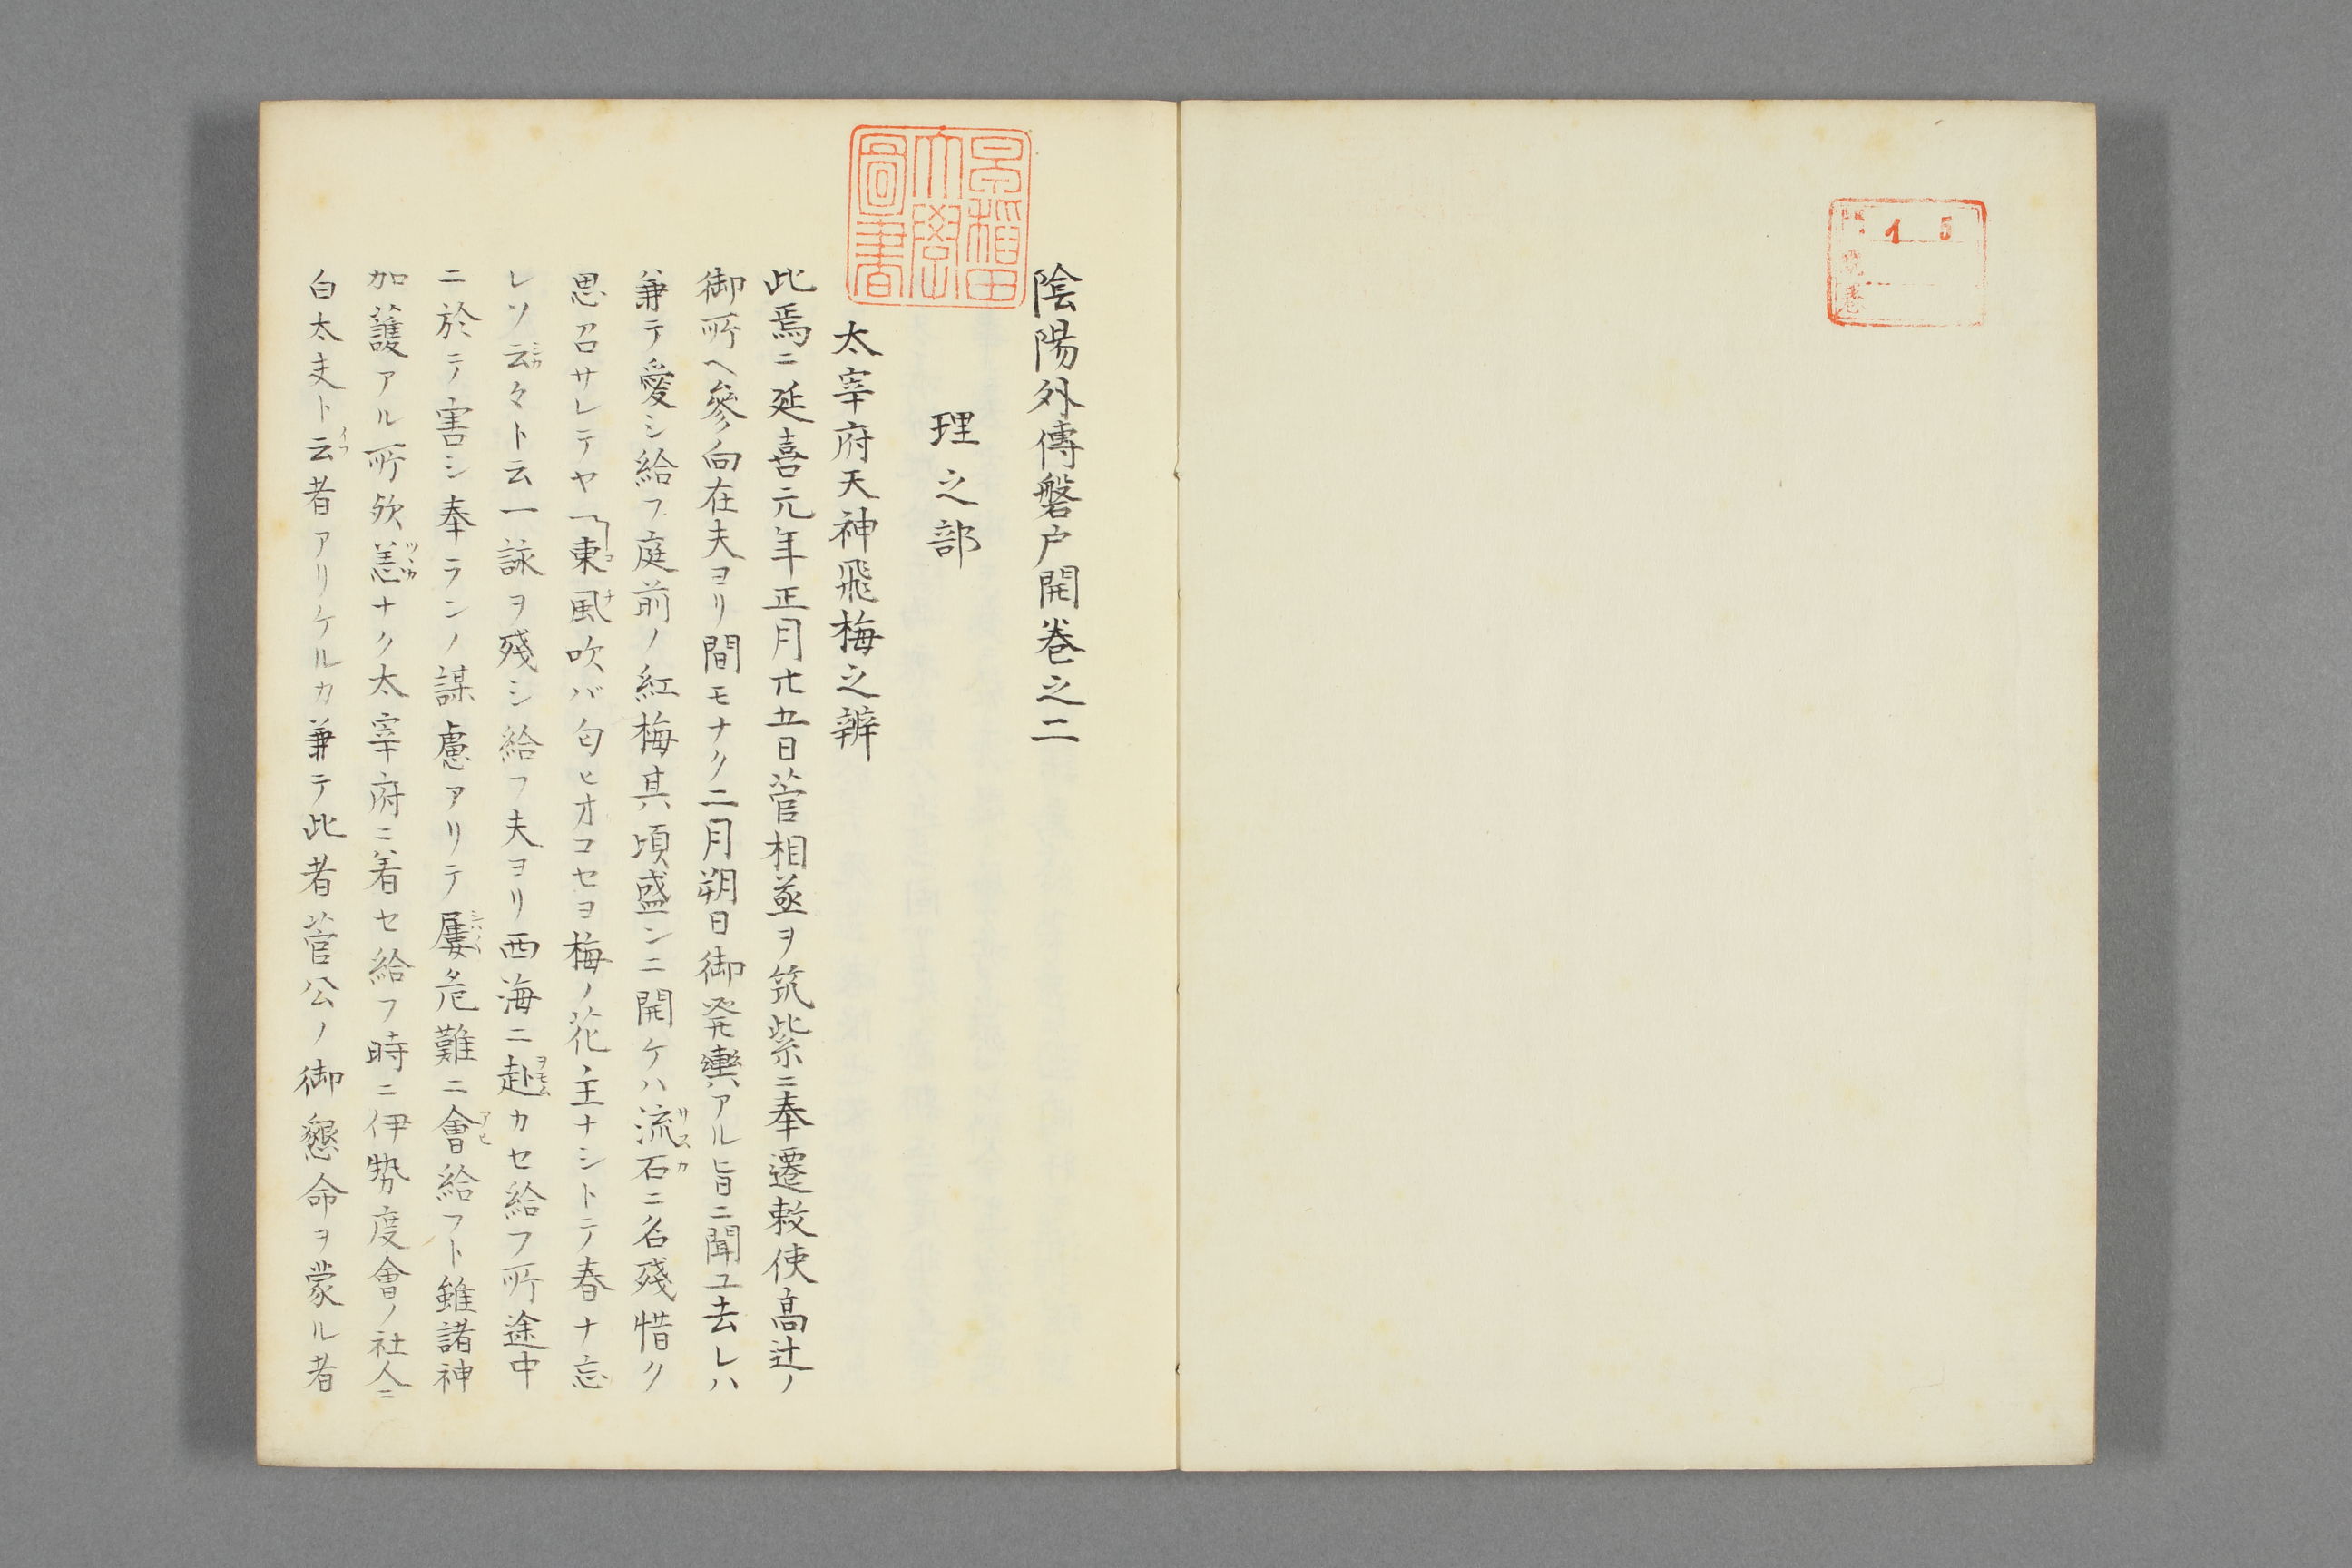 門
號
卷
1 5
早稲田
大學
圖書
陰陽外傳磐户開巻之二
理之部
太宰府天神飛梅之辨
此焉ニ延喜元年正月廿五日菅相丞ヲ筑紫ニ奉遷敕使髙辻ノ
御所ヘ參向在夫ヨリ間モナク二月朔日御発輿アル旨ニ聞ユ去レハ
兼テ愛シ給フ庭前ノ紅梅其頃盛ンニ開ケハ流石ニ名殘惜ク
サスカ
思召サレテヤ「東風吹バ匂ヒオコセヨ梅ノ花主ナシトテ春ナ忘
レソ云々ト云一詠ヲ殘シ給フ夫ヨリ西海ニ赴カセ給フ所途中
ヲモム
ニ於テ害シ奉ランノ謀慮アリテ屢危難ニ會給フト雖諸神
アヒ
加護アル所欤恙ナク太宰府ニ着セ給フ時ニ伊勢度會ノ社人ニ
ツヽカ
白太夫ト云者アリケルカ兼テ此者菅公ノ御懇命ヲ蒙ル者
イフ